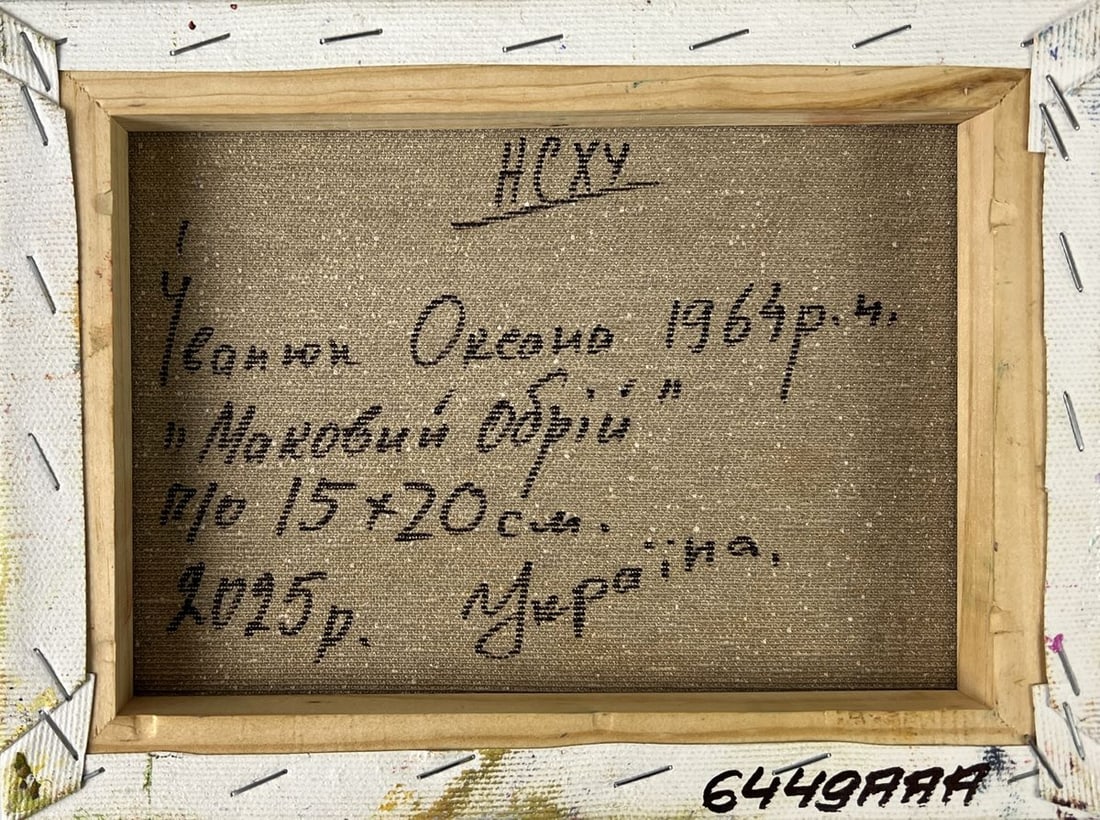 НСХУ
Іванюк Оксана 1964р.н.
"Маковий Обрій"
п/о 15×20см.
2025р. Україна.
6449ААА